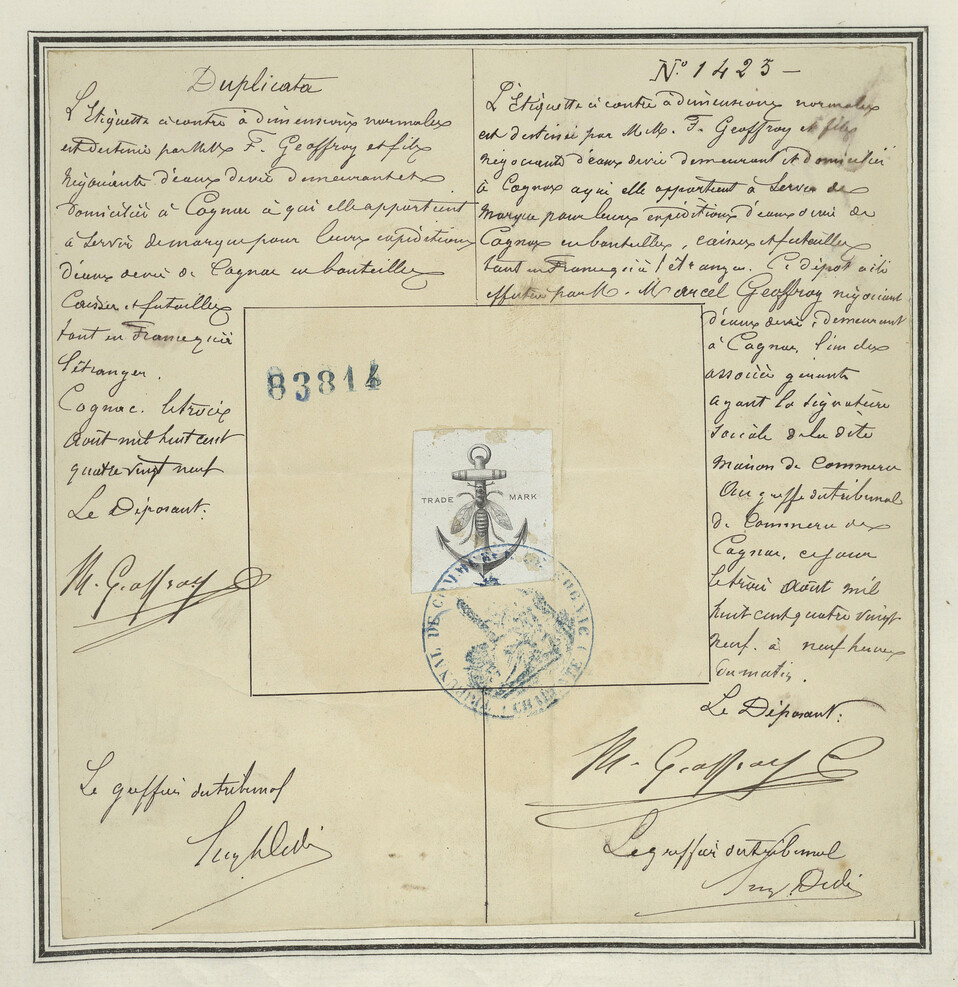 Duplicata
L'Etiquette ci contre à dimensions normales
est destinée par MM. F. Geoffroy et fils
négociants d'eaux de vie demeurant et
domiciliés à Cognac à qui elle appartient
à servir de marque pour leurs expéditions
d'eaux de vie de Cognac en bouteilles
Caisses et futailles
tant en France qu'à
l'étranger.
Cognac. le trois
Août mil huit cent
quatre vingt neuf
Le Déposant:
M. Geoffroy
Le greffier du tribunal
N° 1423 —
L'Etiquette ci contre à dimensions normales
est destinée par M.M. F. Geoffroy et fils
négociants d'eaux de vie demeurant et domiciliés
à Cognac a qui elle appartient à servir de
marque pour leurs expéditions d'eaux de vie de
Cognac en bouteilles, caisses et futailles
tant en France qu'à l'étranger. Ce dépôt a été
effectué par M. Marcel Geoffroy négociant
d'eaux de vie, demeurant
à Cognac, l'un des
associés gérants
ayant la signature
sociale de la dite
maison de Commerce
Au greffe du tribunal
de Commerce de
Cognac, ce jour
le trois Août mil
huit cent quatre vingt
neuf. à neuf heures
du matin.
Le Déposant:
M. Geoffroy
Le greffier du tribunal
83814
TRADE MARK
TRIBUNAL DE COMMERCE DE COGNAC (CHARENTE)